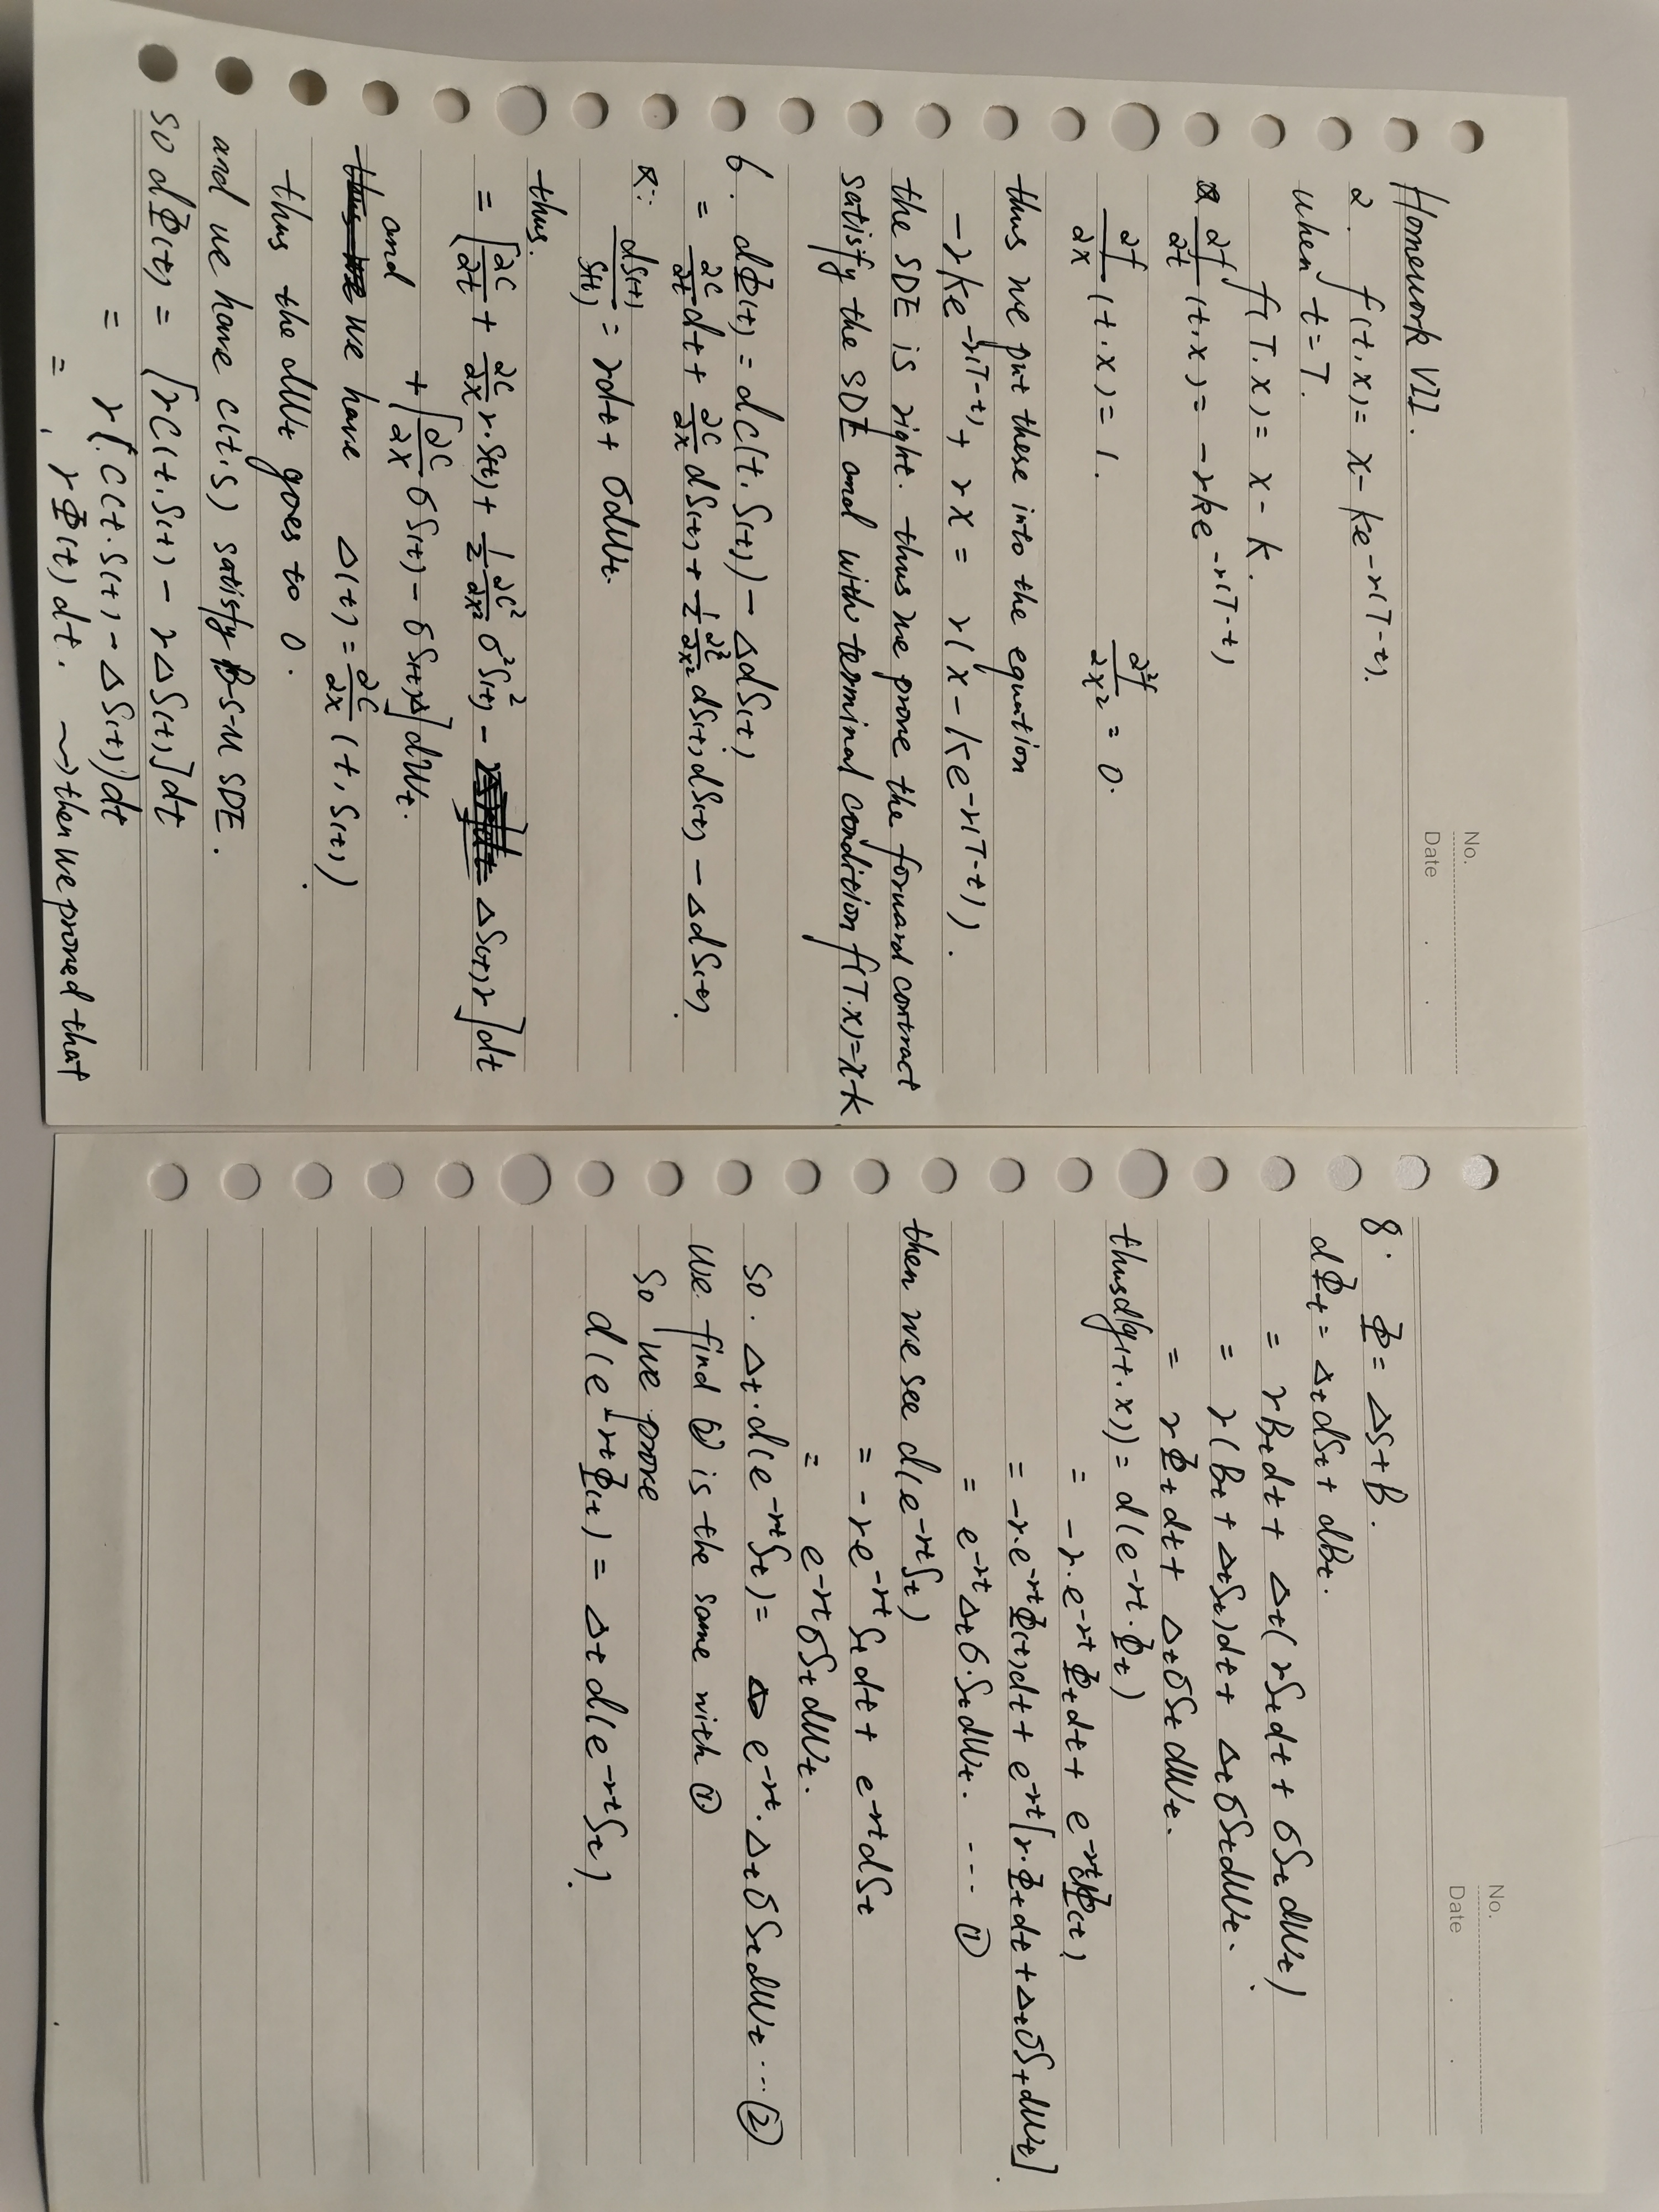 No.
Date . .
Homework VII.
2. f(t,x) = x - ke^{-r(T-t)}.
when t=T.
f(T.x) = x - k.
∂f/∂t (t,x) = -rke^{-r(T-t)}
∂f/∂x (t.x) = 1. ∂²f/∂x² = 0.
thus we put these into the equation
-rke^{-r(T-t)} + rx = r(x-ke^{-r(T-t)}).
the SDE is right. thus we prove the forward contract
satisfy the SDE and with terminal condition f(T.x)=x-k
6. dΦ(t) = dc(t, S(t)) - ΔdS(t)
= ∂c/∂t dt + ∂c/∂x dS(t) + 1/2 ∂²/∂x² dS(t)dS(t) - ΔdS(t).
∵ dS(t)/S(t) = rdt + σdWt.
thus.
= [∂c/∂t + ∂c/∂x r·S(t) + 1/2 ∂c²/∂x² σ²S(t)² - ΔS(t)r]dt
+ [∂c/∂x σS(t) - σS(t)Δ]dWt.
and
we have Δ(t) = ∂c/∂x (t, S(t)).
thus the dWt goes to 0.
and we have c(t.s) satisfy B-S-M SDE.
so dΦ(t) = [rC(t.S(t) - rΔS(t)]dt
= r(.C(t.S(t) - ΔS(t))dt
= rΦ(t)dt. ⇝ then we proved that
No.
Date . .
8. Φ = ΔS+B.
dΦt = ΔtdSt + dBt.
= rBtdt + Δt(rStdt + σStdWt)
= r(Bt + ΔtSt)dt + ΔtσStdWt.
= rΦtdt + ΔtσStdWt.
thus d(g(t.x)) = d(e^{-rt}.Φt)
= -r.e^{-rt}Φtdt + e^{-rt}dΦ(t)
= -r.e^{-rt}Φ(t)dt + e^{-rt}[r.Φtdt + ΔtσStdWt].
= e^{-rt}Δtσ.StdWt. --- ①
then we see d(e^{-rt}St)
= -re^{-rt}Stdt + e^{-rt}dSt
= e^{-rt}σStdWt.
so. Δt.d(e^{-rt}St) = e^{-rt}.ΔtσStdWt ... ②
we find ② is the same with ①
so we prove
d(e^{-rt}Φ(t)) = Δt d(e^{-rt}St).